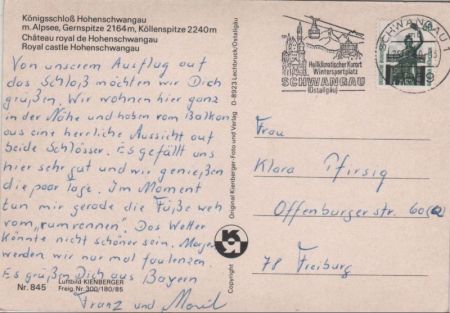 Königsschloß Hohenschwangau
m. Alpsee, Gernspitze 2164m, Köllenspitze 2240m
Château royal de Hohenschwangau
Royal castle Hohenschwangau
Von unserem Ausflug auf
das Schloß möchten wir Dich
grüßen. Wir wohnen hier ganz
in der Nähe und haben vom Balkon
aus eine herrliche Aussicht auf
beide Schlösser. Es gefällt uns
hier sehr gut und wir genießen
die paar Tage. Im Moment
tun mir gerade die Füße weh
vom „rumrennen". Das Wetter
könnte nicht schöner sein. Morgen
werden wir nur mal faulenzen.
Es grüßen Dich aus Bayern
Franz und
Nr. 845
Luftbild KIENBERGER
Freig. Nr. 300/180/85
D-8923 Lechbruck/Ostallgäu
Original Kienberger-Foto und Verlag
Copyright
Heilklimatischer Kurort
Wintersportplatz
SCHWANGAU
(Ostallgäu)
SCHWANGAU 1
Frau
Klara Pfirsig
Offenburger str. 60
78 Freiburg